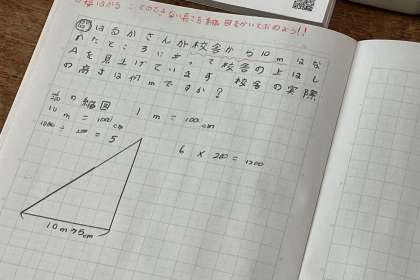 問 はるかさんが校舎から10mはな
れたところに立って校舎の上はし
Aを見上げています 校舎の実際
の高さは何mですか?
の縮図
10m = 1000cm
1m = 100cm
1000 ÷ 200 = 5
6 × 200 = 1200
10m→5cm